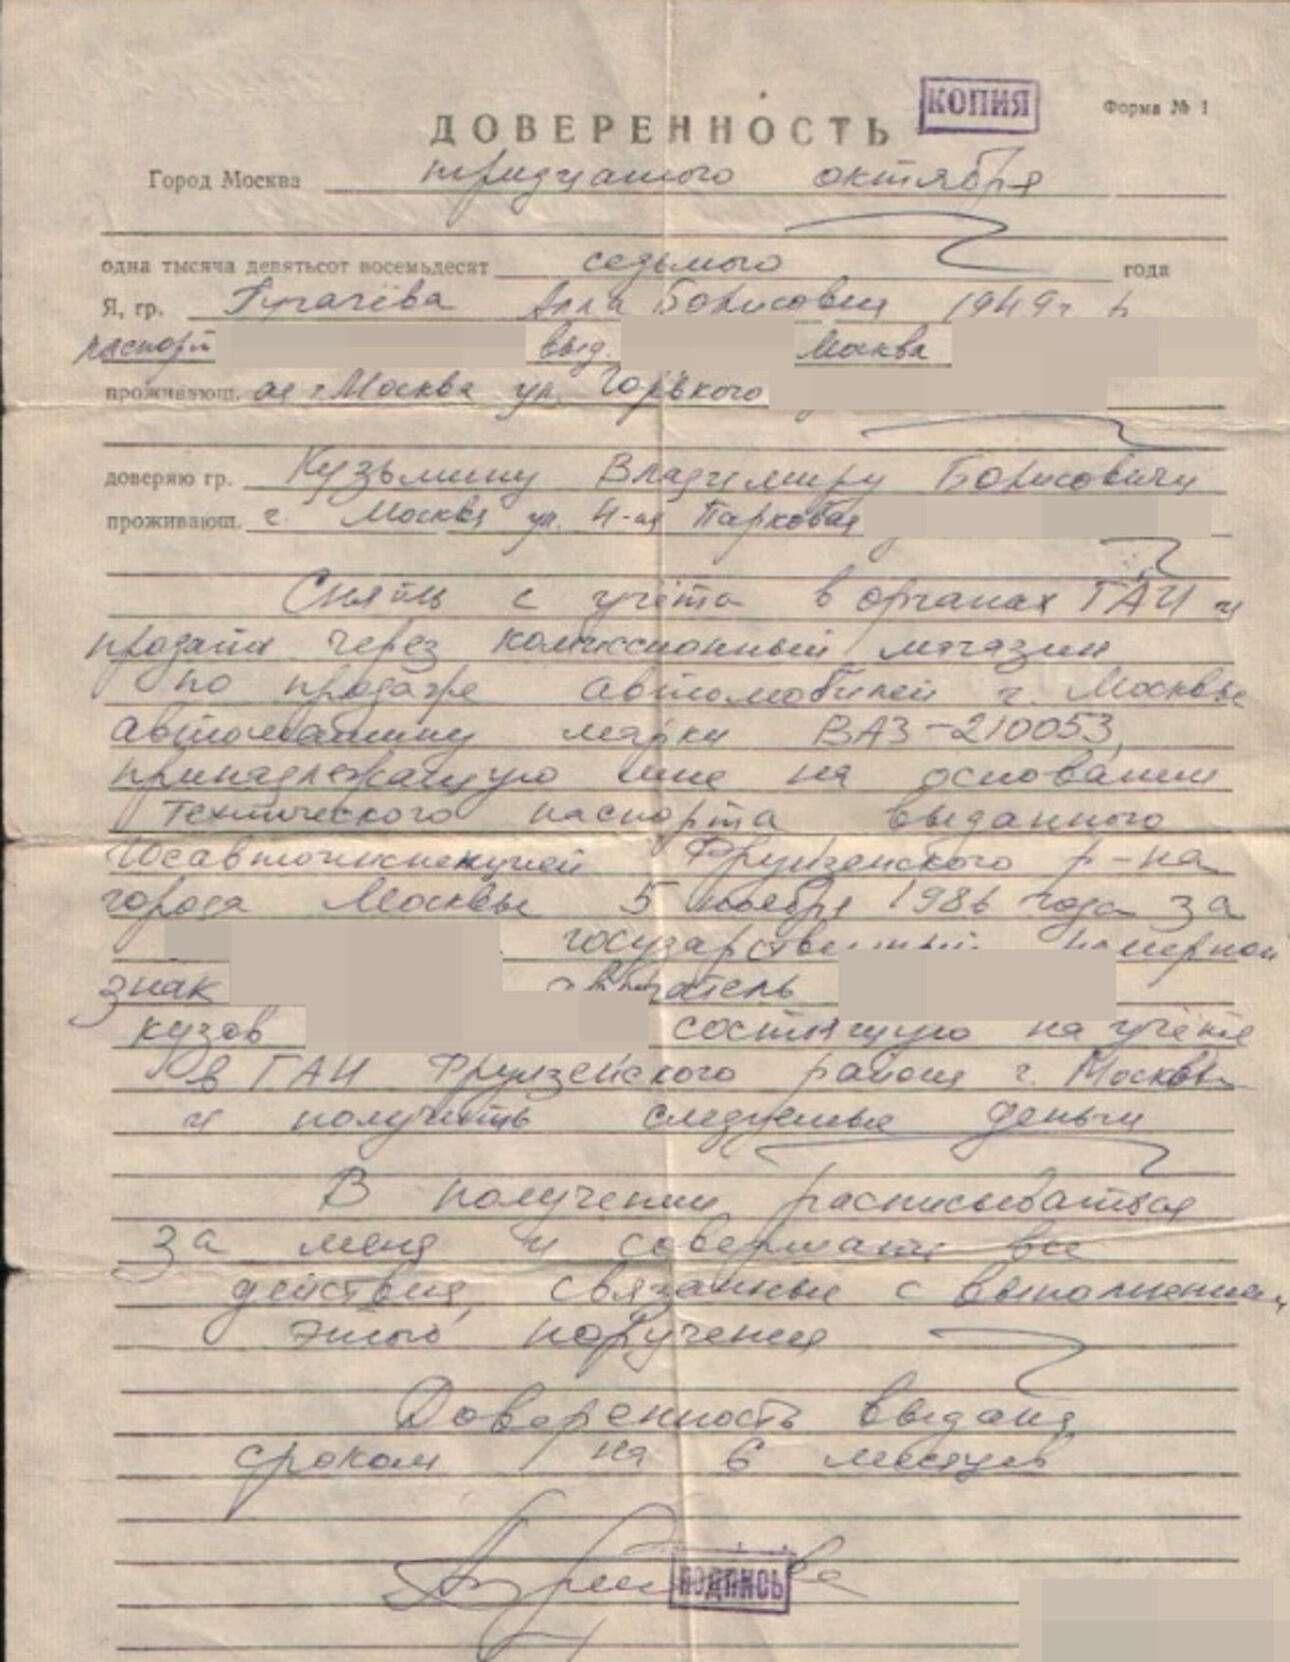 КОПИЯ
Форма № 1
ДОВЕРЕННОСТЬ
Город Москва тридцатого октября
одна тысяча девятьсот восемьдесят седьмого года
Я, гр. Пугачёва Алла Борисовна 1949 г р
паспорт выд. Москва
проживающ. ая г. Москва ул. Горького
доверяю гр. Кузьмину Владимиру Борисовичу
проживающ. г. Москва ул. 4-ая Парковая
Снять с учёта в органах ГАИ и
продать через комиссионный магазин
по продаже автомобилей г. Москвы
автомашину марки ВАЗ-210053,
принадлежащую мне на основании
технического паспорта выданного
Госавтоинспекцией Фрунзенского р-на
города Москвы 5 ноября 1986 года за
государственный номерной
знак двигатель
кузов состящую на учёте
в ГАИ Фрунзенского района г. Москвы
и получить следуемые деньги
В получении расписываться
за меня и совершать все
действия, связанные с выполнением
этого поручения
Доверенность выдана
сроком на 6 месяцев
ПОДПИСЬ